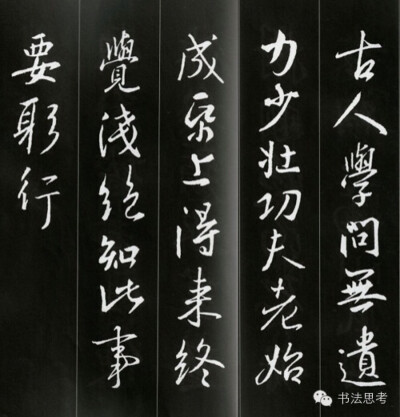 古人學問無遺
力少壯功夫老始
成帋上得来終
覺淺絕知此事
要躬行
书法思考